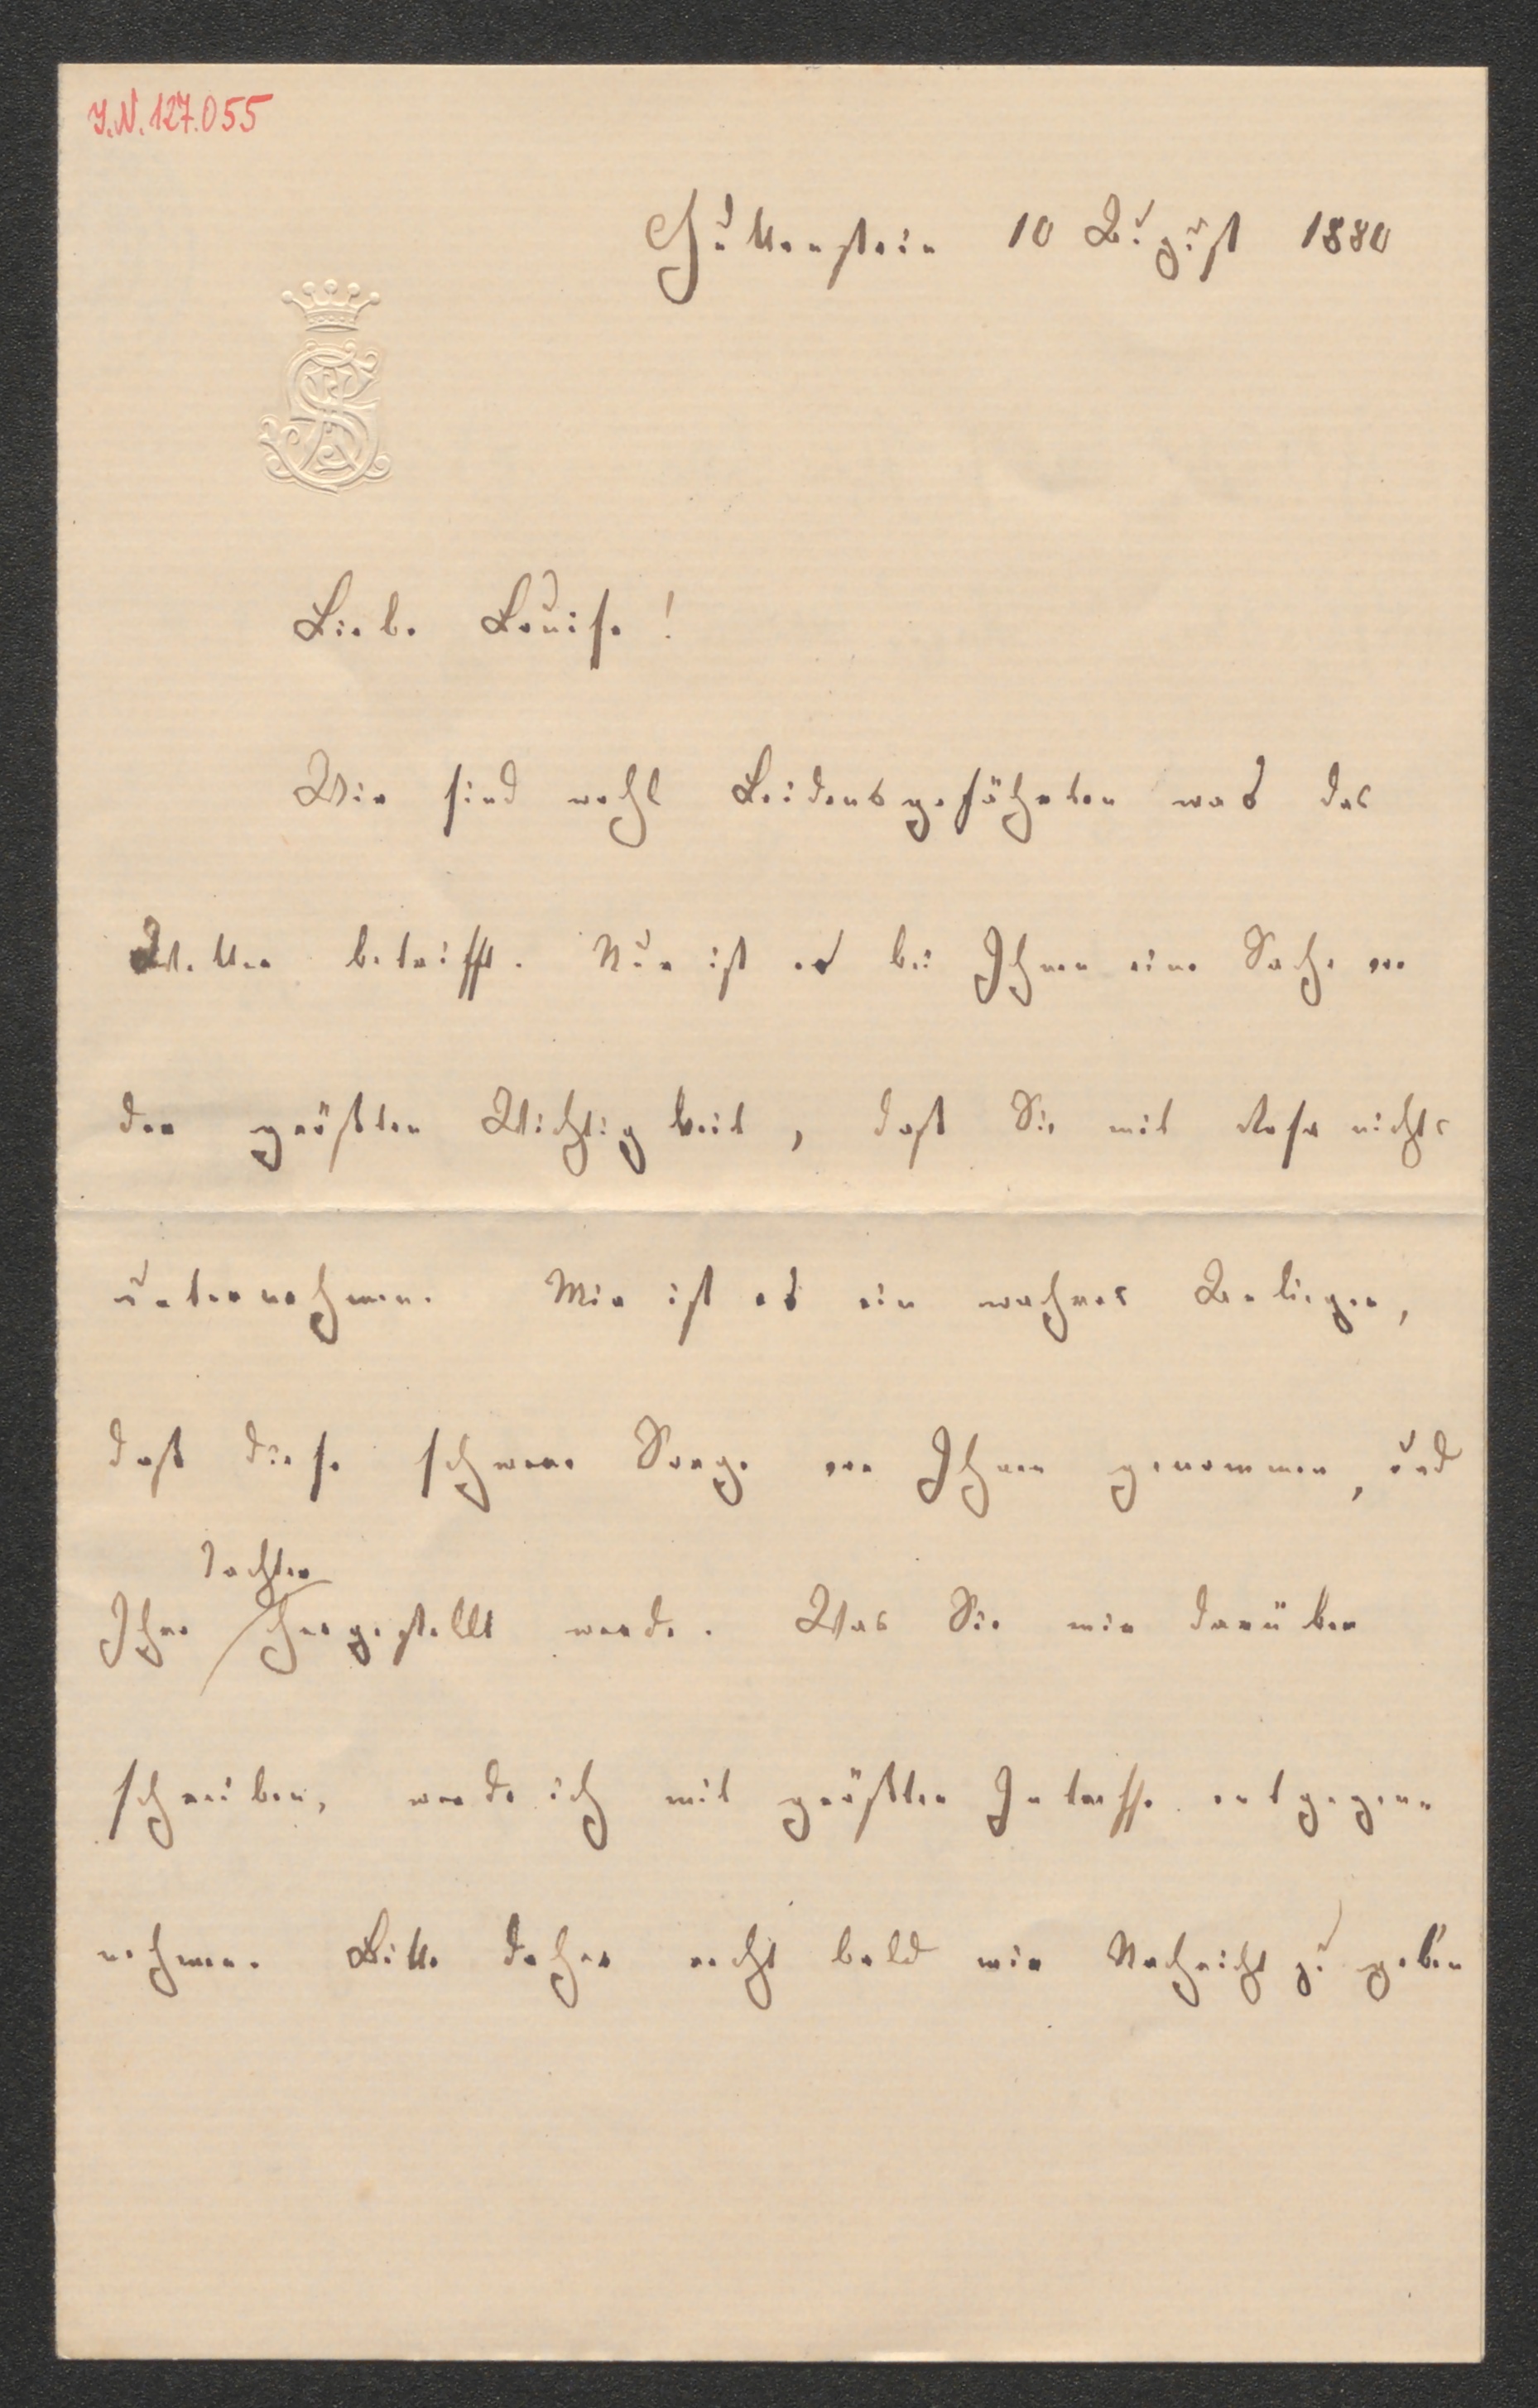 I.N. 127.055
Guttenstein 10 August 1880
Liebe Louise!
Wir sind wohl Leidensgefährten was das
Wetter betrifft. Nur ist es bei Ihnen eine Sache von
der größten Wichtigkeit, daß Sie mit nichts
unternehmen. Mir ist es ein wahres Anliegen,
daß diese schwere Sorge von Ihnen genommen, und
Tochter
Ihre hergestellt werde. Was Sie mir darüber
schreiben, werde ich mit größten Interesse entgegen
nehmen. Bitte daher recht bald mir Nachricht zu geben